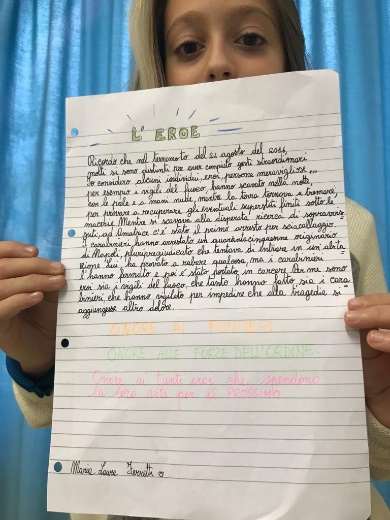 L'EROE
Ricordo che nel terremoto del 24 agosto del 2016,
molti si sono distinti per aver compiuto gesti straordinari.
Io considero alcuni individui eroi, persone meravigliose...
per esempio i vigili del fuoco, hanno scavato nella notte,
con le pale e a mani nude, mentre la terra tornava a tremare,
per provare a recuperare gli eventuali superstiti finiti sotto le
macerie. Mentre si scavava alla disperata ricerca di sopravvis-
suti, ad Amatrice c'è stato il primo arresto per sciacallaggio.
I carabinieri, hanno arrestato un quarantacinquenne originario
di Napoli, pluripregiudicato che tentava di entrare in un'abita-
zione. Lui, ha provato a rubare qualcosa, ma i carabinieri
l'hanno fermato e poi è stato portato in carcere. Per me sono
eroi sia i vigili del fuoco, che tanto hanno fatto, sia i cara
binieri che hanno vigilato per impedire che alla tragedia si
aggiungesse altro dolore.
ONORE AI POMPIERI
ONORE alle FORZE DELL'ORDINE
Onore a tanti eroi che spendono
la loro vita per il PROSSIMO
Maria Laura Ferretti